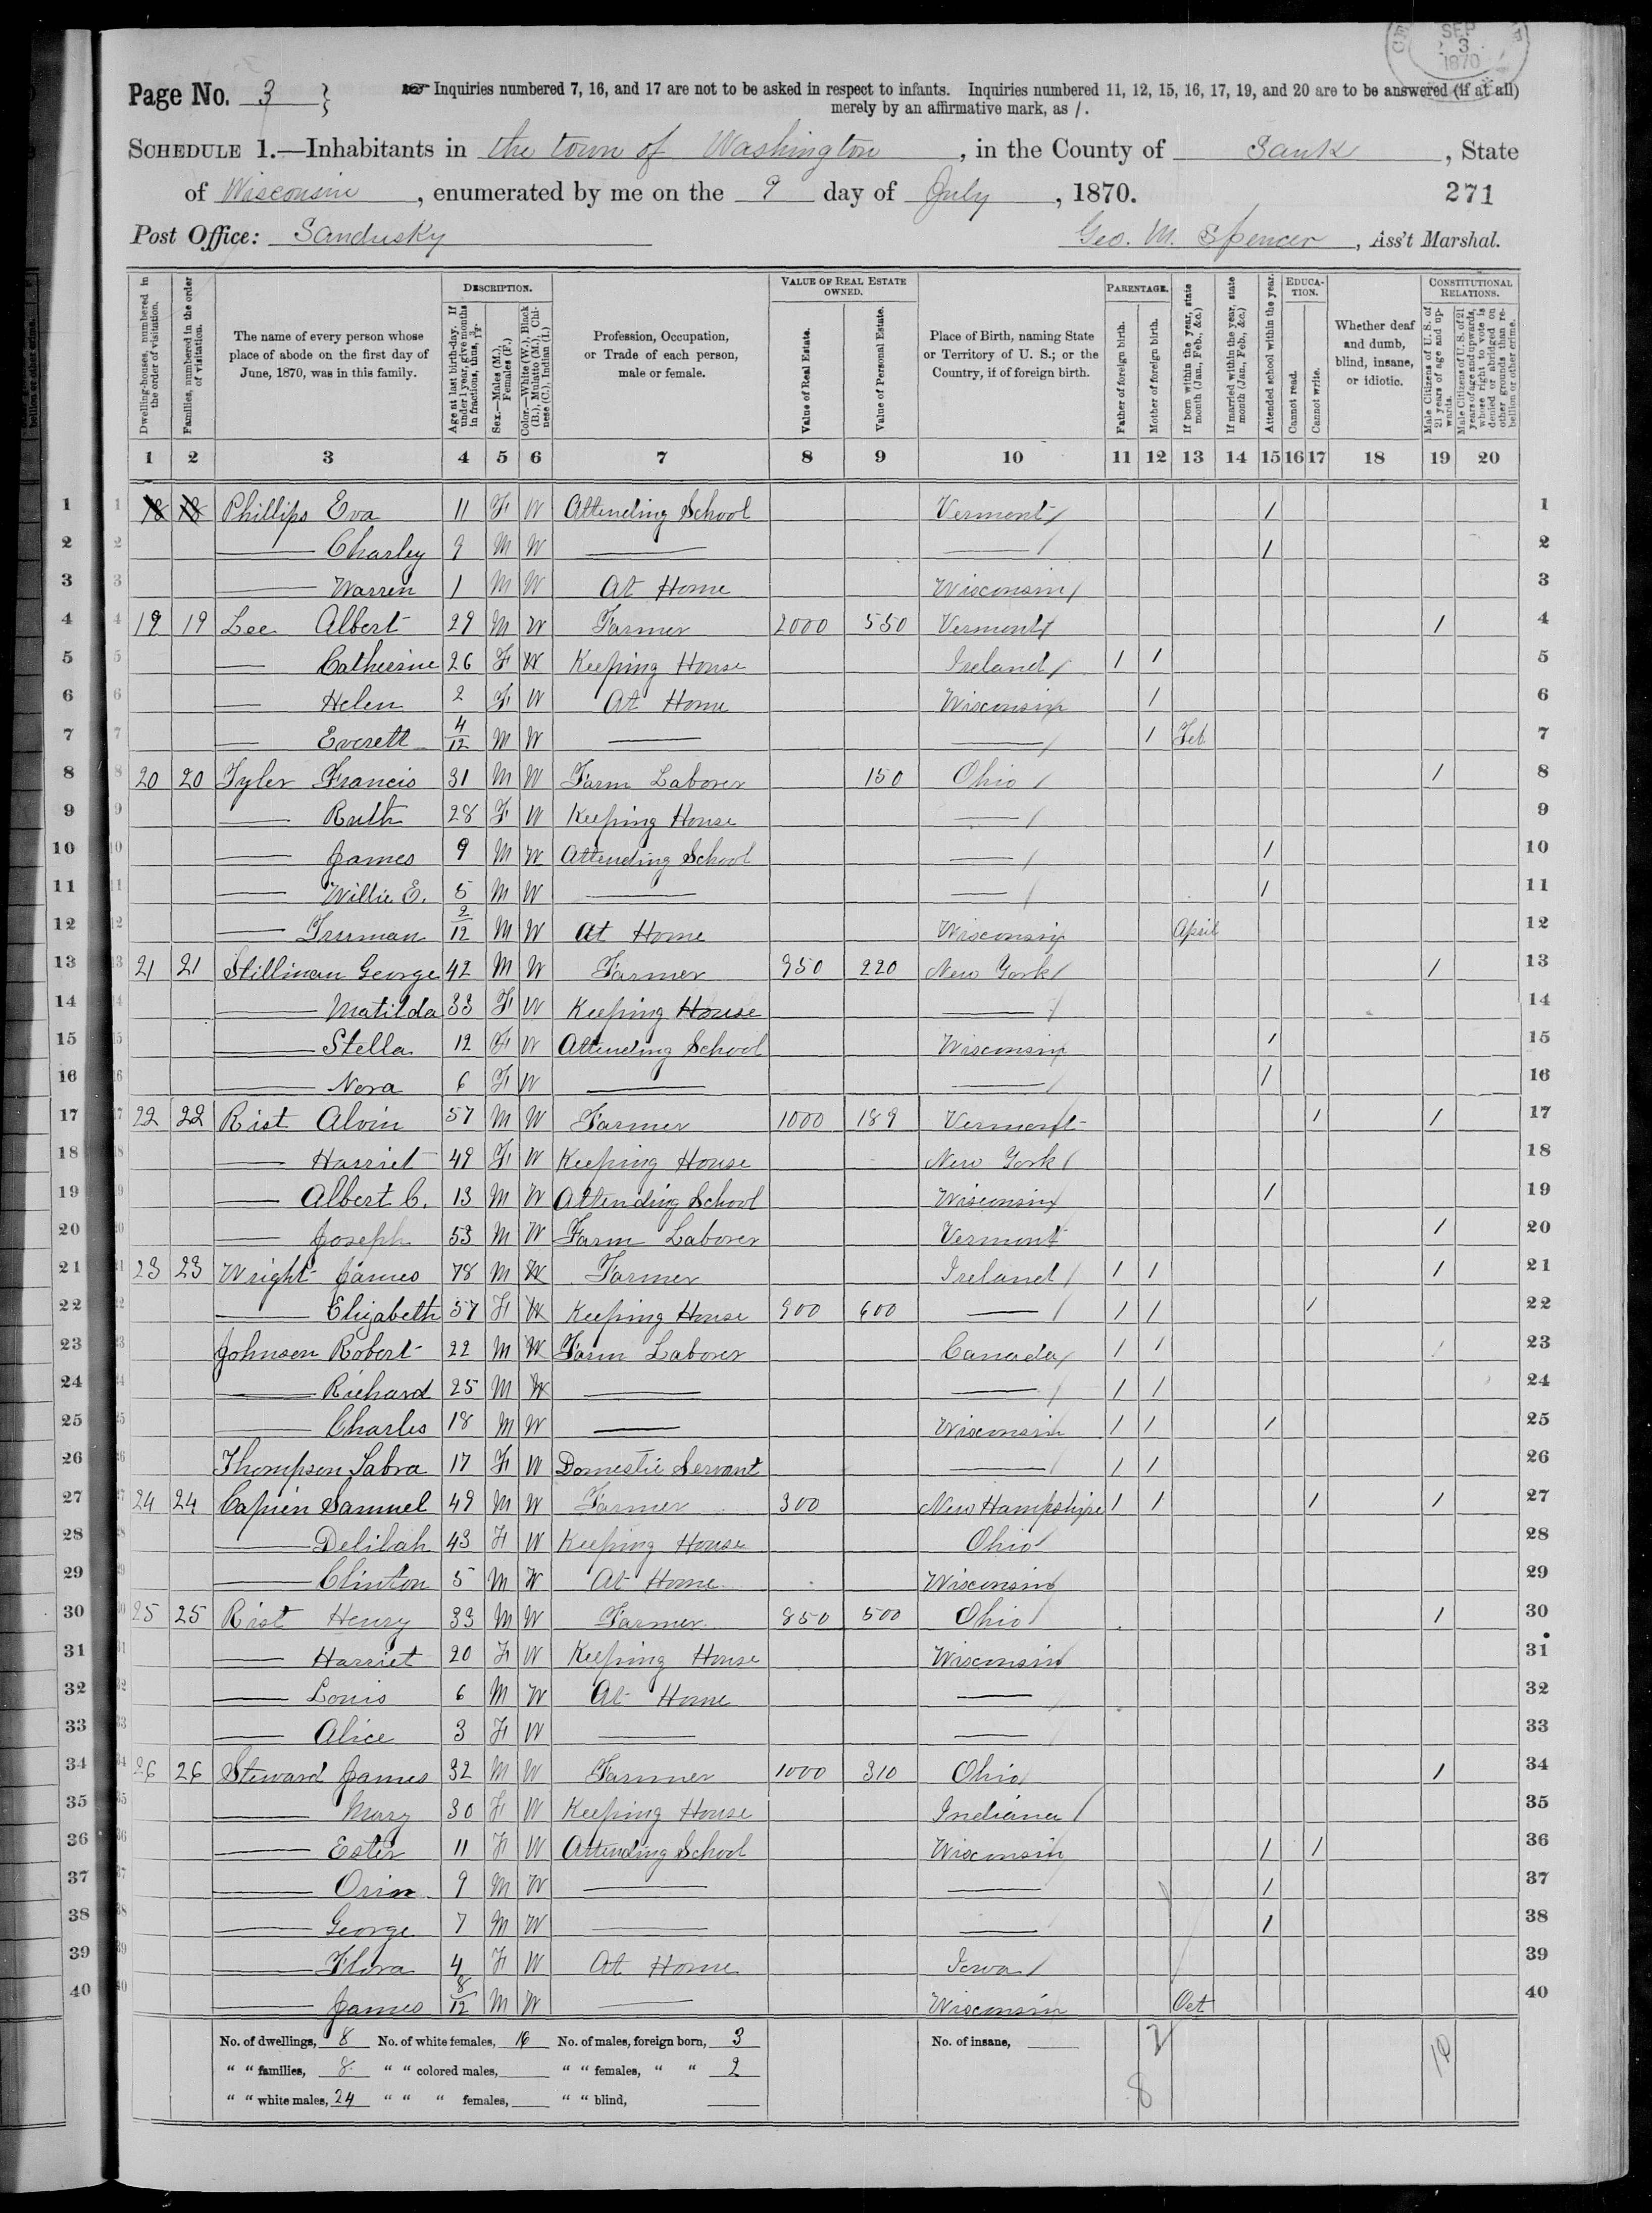 SEP 3 1870
Page No. 3 } Inquiries numbered 7, 16, and 17 are not to be asked in respect to infants. Inquiries numbered 11, 12, 15, 16, 17, 19, and 20 are to be answered (if at all)
merely by an affirmative mark, as /.
SCHEDULE 1.—Inhabitants in the town of Washington, in the County of Sauk, State
of Wisconsin, enumerated by me on the 9 day of July, 1870. 271
Post Office: Sandusky Geo. M. Spencer, Ass't Marshal.
Dwelling-houses, numbered in the order of visitation.
Families, numbered in the order of visitation.
The name of every person whose place of abode on the first day of June, 1870, was in this family.
DESCRIPTION.
Age at last birth-day. If under 1 year, give months in fractions, thus, 3/12.
Sex.—Males (M.), Females (F.)
Color.—White (W.), Black (B.), Mulatto (M.), Chinese (C.), Indian (I.)
Profession, Occupation, or Trade of each person, male or female.
VALUE OF REAL ESTATE OWNED.
Value of Real Estate.
Value of Personal Estate.
Place of Birth, naming State or Territory of U. S.; or the Country, if of foreign birth.
PARENTAGE.
Father of foreign birth.
Mother of foreign birth.
If born within the year, state month (Jan., Feb., &c.)
If married within the year, state month (Jan., Feb., &c.)
Attended school within the year.
EDUCATION.
Cannot read.
Cannot write.
Whether deaf and dumb, blind, insane, or idiotic.
CONSTITUTIONAL RELATIONS.
Male Citizens of U. S. of 21 years of age and upwards.
Male Citizens of U. S. of 21 years of age and upwards, whose right to vote is denied or abridged on other grounds than rebellion or other crime.
1 2 3 4 5 6 7 8 9 10 11 12 13 14 15 16 17 18 19 20
1 18 18 Phillips Eva 11 F W Attending School Vermont / 1
2 — Charley 9 M W — — / 2
3 — Warren 1 M W At Home Wisconsin 3
4 19 19 Lee Albert 29 M W Farmer 2000 550 Vermont / 4
5 — Catherine 26 F W Keeping House Ireland / / 5
6 — Helen 2 F W At Home Wisconsin / 6
7 — Everett 4/12 M W — — / Feb 7
8 20 20 Tyler Francis 31 M W Farm Laborer 150 Ohio / 8
9 — Ruth 28 F W Keeping House — 9
10 — James 9 M W Attending School — / 10
11 — Willie E. 5 M W — — / 11
12 — Truman 2/12 M W At Home Wisconsin April 12
13 21 21 Stillman George 42 M W Farmer 950 220 New York / 13
14 — Matilda 33 F W Keeping House — 14
15 — Stella 12 F W Attending School Wisconsin / 15
16 — Nora 6 F W — — / 16
17 22 22 Rist Alvin 57 M W Farmer 1000 189 Vermont / / 17
18 — Harriet 49 F W Keeping House New York 18
19 — Albert C. 13 M W Attending School Wisconsin / 19
20 — Joseph 53 M W Farm Laborer Vermont / 20
21 23 23 Wright James 78 M W Farmer Ireland / / / 21
22 — Elizabeth 57 F W Keeping House 900 600 — / / / 22
23 Johnson Robert 22 M W Farm Laborer Canada / / / 23
24 — Richard 25 M W — — / / 24
25 — Charles 18 M W — Wisconsin / / / 25
26 Thompson Sabra 17 F W Domestic Servant — / / 26
27 24 24 Capien Samuel 49 M W Farmer 300 New Hampshire / / / / 27
28 — Delilah 43 F W Keeping House Ohio 28
29 — Clinton 5 M W At Home Wisconsin 29
30 25 25 Rist Henry 33 M W Farmer 850 500 Ohio / 30
31 — Harriet 20 F W Keeping House Wisconsin 31
32 — Louis 6 M W At Home — 32
33 — Alice 3 F W — — 33
34 26 26 Steward James 32 M W Farmer 1000 310 Ohio / 34
35 — Mary 30 F W Keeping House Indiana 35
36 — Ester 11 F W Attending School Wisconsin / / 36
37 — Orin 9 M W — — / 37
38 — George 7 M W — — / 38
39 — Flora 4 F W At Home Iowa 39
40 — James 8/12 M W — Wisconsin Oct 40
No. of dwellings, 8 No. of white females, 16 No. of males, foreign born, 3 No. of insane, 2 10
" " families, 8 " " colored males, " " females, " " 2
" " white males, 24 " " " females, " " blind, 8